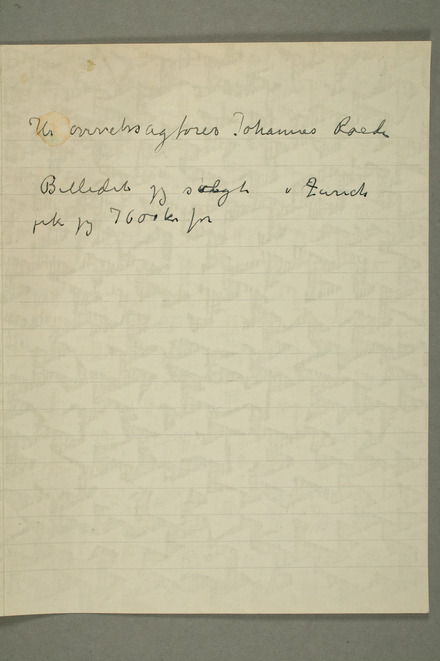 Hr overretsagfører Johannes Roede
Billedet jeg solgte i Zürich
fik jeg 7600 kr for